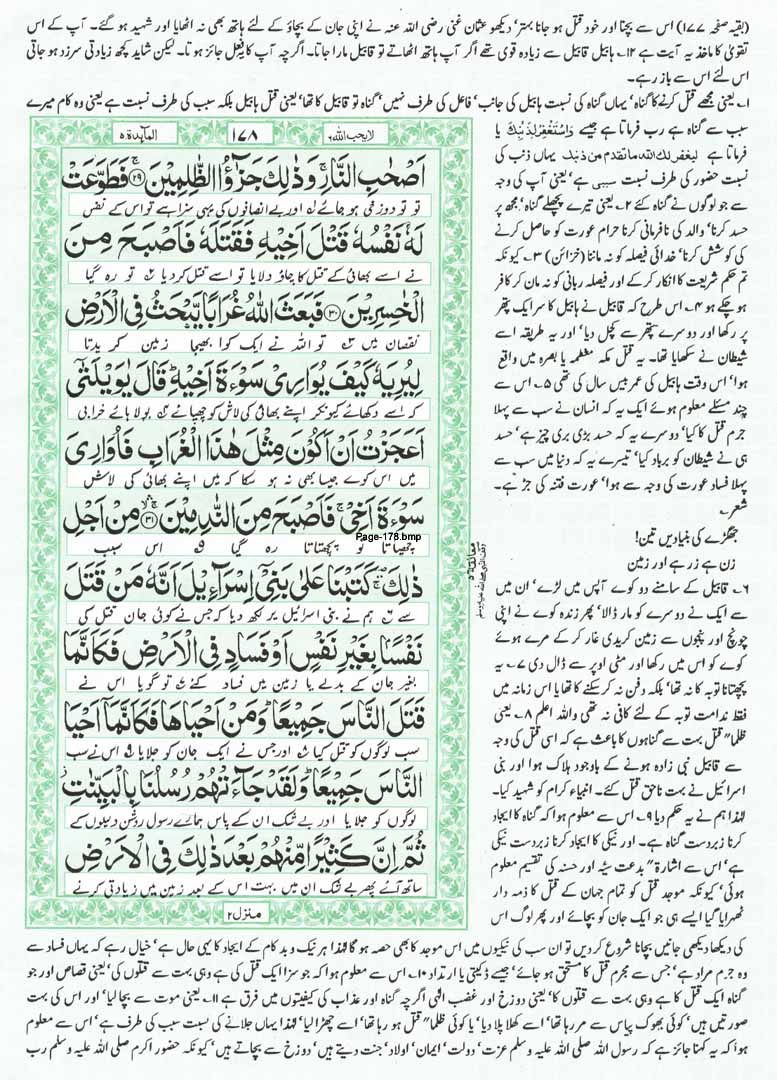 (بقیہ صفحہ ۱۷۷) اس سے بچنا اور خود قتل ہو جانا بہتر' دیکھو عثمان غنی رضی اللہ عنہ نے اپنی جان کے بچاؤ کے لئے ہاتھ بھی نہ اٹھایا اور شہید ہو گئے۔ آپ کے اس
تقویٰ کا ماخذ یہ آیت ہے ۱۲۔ ہابیل قابیل سے زیادہ قوی تھے اگر آپ ہاتھ اٹھاتے تو قابیل مارا جاتا۔ اگرچہ آپ کا فعل جائز ہوتا۔ لیکن شاید کچھ زیادتی سرزد ہو جاتی
اس لئے اس سے باز رہے۔
۱۔ یعنی مجھے قتل کرنے کا گناہ' یہاں گناہ کی نسبت ہابیل کی جانب' فاعل کی طرف نہیں' گناہ تو قابیل کا تھا' یعنی قتل ہابیل بلکہ سبب کی طرف نسبت ہے یعنی وہ کام میرے
سبب سے گناہ ہے رب فرماتا ہے جیسے وَاسْتَغْفِرْ لِذَنْبِكَ یا
فرماتا ہے لیغفر لك الله ما تقدم من ذنبك یہاں ذنب کی
نسبت حضور کی طرف نسبت سببی ہے' یعنی آپ کی وجہ
سے جو لوگوں نے گناہ کئے ۲۔ یعنی تیرے پچھلے گناہ' مجھ پر
حسد کرنا' والد کی نافرمانی کرنا حرام عورت کو حاصل کرنے
کی کوشش کرنا' خدائی فیصلہ کو نہ ماننا (خزائن) ۳۔ کیونکہ
تم حکم شریعت کا انکار کر کے اور فیصلہ ربانی کو نہ مان کر کافر
ہو چکے ہو ۴۔ اس طرح کہ قابیل نے ہابیل کا سر ایک پتھر
پر رکھا اور دوسرے پتھر سے کچل دیا' اور یہ طریقہ اسے
شیطان نے سکھایا تھا۔ یہ قتل مکہ معظمہ یا بصرہ میں واقع
ہوا' اس وقت ہابیل کی عمر بیس سال کی تھی ۵۔ اس سے
چند مسئلے معلوم ہوئے ایک یہ کہ انسان نے سب سے پہلا
جرم قتل کا کیا' دوسرے یہ کہ حسد بڑی بری چیز ہے' حسد
ہی نے شیطان کو برباد کیا' تیسرے یہ کہ دنیا میں سب سے
پہلا فساد عورت کی وجہ سے ہوا' عورت فتنہ کی جڑ ہے۔
شعر
جھگڑے کی بنیادیں تین!
زن ہے زر ہے اور زمین
۶۔ قابیل کے سامنے دو کوے آپس میں لڑے' ان میں
سے ایک نے دوسرے کو مار ڈالا' پھر زندہ کوے نے اپنی
چونچ اور پنجوں سے زمین کریدی غار کر کے مرے ہوئے
کوے کو اس میں رکھا اور مٹی اوپر سے ڈال دی ۷۔ یہ
پچھتانا توبہ کا نہ تھا' بلکہ دفن نہ کر سکنے کا تھا یا اس زمانہ میں
فقط ندامت توبہ کے لئے کافی نہ تھی واللہ اعلم ۸۔ یعنی
ظلما" قتل بہت سے گناہوں کا باعث ہے کہ اسی قتل کی وجہ
سے قابیل نبی زادہ ہونے کے باوجود ہلاک ہوا اور بنی
اسرائیل نے بہت ناحق قتل کئے۔ انبیاء کرام کو شہید کیا۔
لہٰذا ہم نے یہ حکم دیا ۹۔ اس سے معلوم ہوا کہ گناہ کا ایجاد
کرنا زبردست گناہ ہے۔ اور نیکی کا ایجاد کرنا زبردست نیکی
ہے' اس سے اشارۃ" بدعت سیئہ اور حسنہ کی تقسیم معلوم
ہوئی' کیونکہ موجد قتل کو تمام جہان کے قتل کا ذمہ دار
ٹھہرایا گیا ایسے ہی جو ایک جان کو بچائے اور پھر لوگ اس
لا یحب اللہ ۶
۱۷۸
المآىٕدۃ ۵
اَصْحٰبِ النَّارِ ۚ وَ ذٰلِكَ جَزٰٓؤُا الظّٰلِمِیْنَ ۚ۝۲۹ فَطَوَّعَتْ
تو تو دوزخی ہو جائے ۳ اور بے انصافوں کی یہی سزا ہے تو اس کے نفس
لَهٗ نَفْسُهٗ قَتْلَ اَخِیْهِ فَقَتَلَهٗ فَاَصْبَحَ مِنَ
نے اسے بھائی کے قتل کا چاؤ دلایا تو اسے قتل کر دیا تو رہ گیا
الْخٰسِرِیْنَ ۝۳۰ فَبَعَثَ اللّٰهُ غُرَابًا یَّبْحَثُ فِی الْاَرْضِ
نقصان میں تو اللہ نے ایک کوا بھیجا زمین کریدتا
لِیُرِیَهٗ كَیْفَ یُوَارِیْ سَوْءَةَ اَخِیْهِ ؕ قَالَ یٰوَیْلَتٰۤی
کہ اسے دکھائے کیونکر اپنے بھائی کی لاش کو چھپائے بولا ہائے خرابی
اَعَجَزْتُ اَنْ اَكُوْنَ مِثْلَ هٰذَا الْغُرَابِ فَاُوَارِیَ
میں اس کوے جیسا بھی نہ ہو سکا کہ میں اپنے بھائی کی لاش
سَوْءَةَ اَخِیْ ۚ فَاَصْبَحَ مِنَ النّٰدِمِیْنَ ۝۳۱ مِنْ اَجْلِ
Page-178.bmp
چھپاتا تو پچھتاتا رہ گیا اس سبب
ذٰلِكَ ۛۚ كَتَبْنَا عَلٰی بَنِیْۤ اِسْرَآءِیْلَ اَنَّهٗ مَنْ قَتَلَ
سے ہم نے بنی اسرائیل پر لکھ دیا کہ جس نے کوئی جان قتل کی
نَفْسًۢا بِغَیْرِ نَفْسٍ اَوْ فَسَادٍ فِی الْاَرْضِ فَكَاَنَّمَا
بغیر جان کے بدلے یا زمین میں فساد کئے تو گویا اس نے
قَتَلَ النَّاسَ جَمِیْعًا ؕ وَ مَنْ اَحْیَاهَا فَكَاَنَّمَاۤ اَحْیَا
سب لوگوں کو قتل کیا اور جس نے ایک جان کو جلایا اس نے سب
النَّاسَ جَمِیْعًا ؕ وَ لَقَدْ جَآءَتْهُمْ رُسُلُنَا بِالْبَیِّنٰتِ ؗ
لوگوں کو جلا لیا اور بے شک ان کے پاس ہمارے رسول روشن دلیلوں کے
ثُمَّ اِنَّ كَثِیْرًا مِّنْهُمْ بَعْدَ ذٰلِكَ فِی الْاَرْضِ
ساتھ آئے پھر بے شک ان میں بہت اس کے بعد زمین میں زیادتی کرنے
منزل ۲
کی دیکھا دیکھی جانیں بچانا شروع کر دیں تو ان سب کی نیکیوں میں اس موجد کا بھی حصہ ہو گا لہٰذا ہر نیک و بد کام کے ایجاد کا یہی حال ہے' خیال رہے کہ یہاں فساد سے
وہ جرم مراد ہے' جس سے مجرم قتل کا مستحق ہو جائے' جیسے ڈکیتی یا ارتداد ۱۰۔ اس سے معلوم ہوا کہ جو سزا ایک قتل کی ہے وہی بہت سے قتلوں کی' یعنی قصاص اور جو
گناہ ایک قتل کا ہے وہی بہت سے قتلوں کا' یعنی دوزخ اور غضب الٰہی اگرچہ گناہ اور عذاب کی کیفیتوں میں فرق ہے ۱۱۔ یعنی موت سے بچا لیا' اور اس کی بہت
صورتیں ہیں' کوئی بھوک پیاس سے مر رہا تھا' اسے کھلا پلا دیا' یا کوئی ظلما" قتل ہو رہا تھا' اسے چھڑا لیا' لہٰذا یہاں جلانے کی نسبت سبب کی طرف ہے' اس سے معلوم
ہوا کہ یہ کہنا جائز ہے کہ رسول اللہ صلی اللہ علیہ وسلم عزت' دولت' ایمان' اولاد' جنت دیتے ہیں' دوزخ سے بچاتے ہیں' کیونکہ حضور اکرم صلی اللہ علیہ وسلم رب